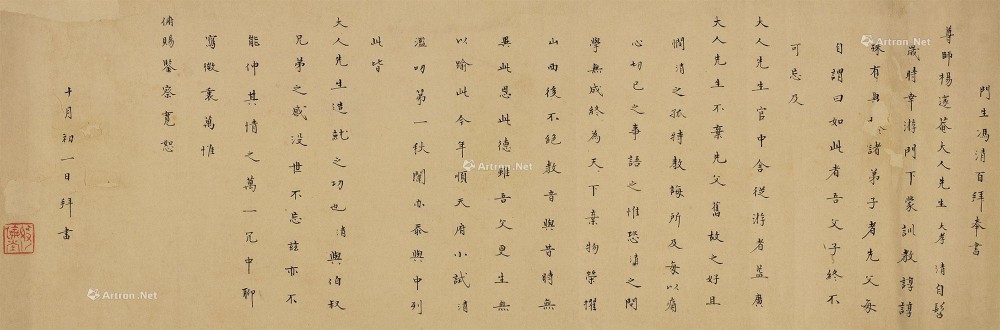 門生馮清百拜奉書
尊師楊邃菴大人先生大孝清自髫
歲時幸游門下蒙訓教諄諄
殊有異小諸弟子者先父每
自謂曰如此者吾父子終不
可忘及
大人先生官中舍從游者益廣
大人先生不棄先父舊故之好且
憫清之孤特教誨所及每以痛
心切己之事語之惟恐清之問
學無成終為天下棄物榮擢
山西後不絕教音與昔時無
異此恩此德雖吾父更生無
以踰此今年順天府小試清
濫叨第一秋闈亦忝與中列
此皆
大人先生造就之功也清與伯叔
兄弟之感沒世不忘玆亦不
能伸其情之萬一冗中聊
寫微衷萬惟
俯賜鑒察寬恕
十月初一日拜書
Artron.Net
Artron.Net
Artron.Net
Artron.Net
Artron.Net